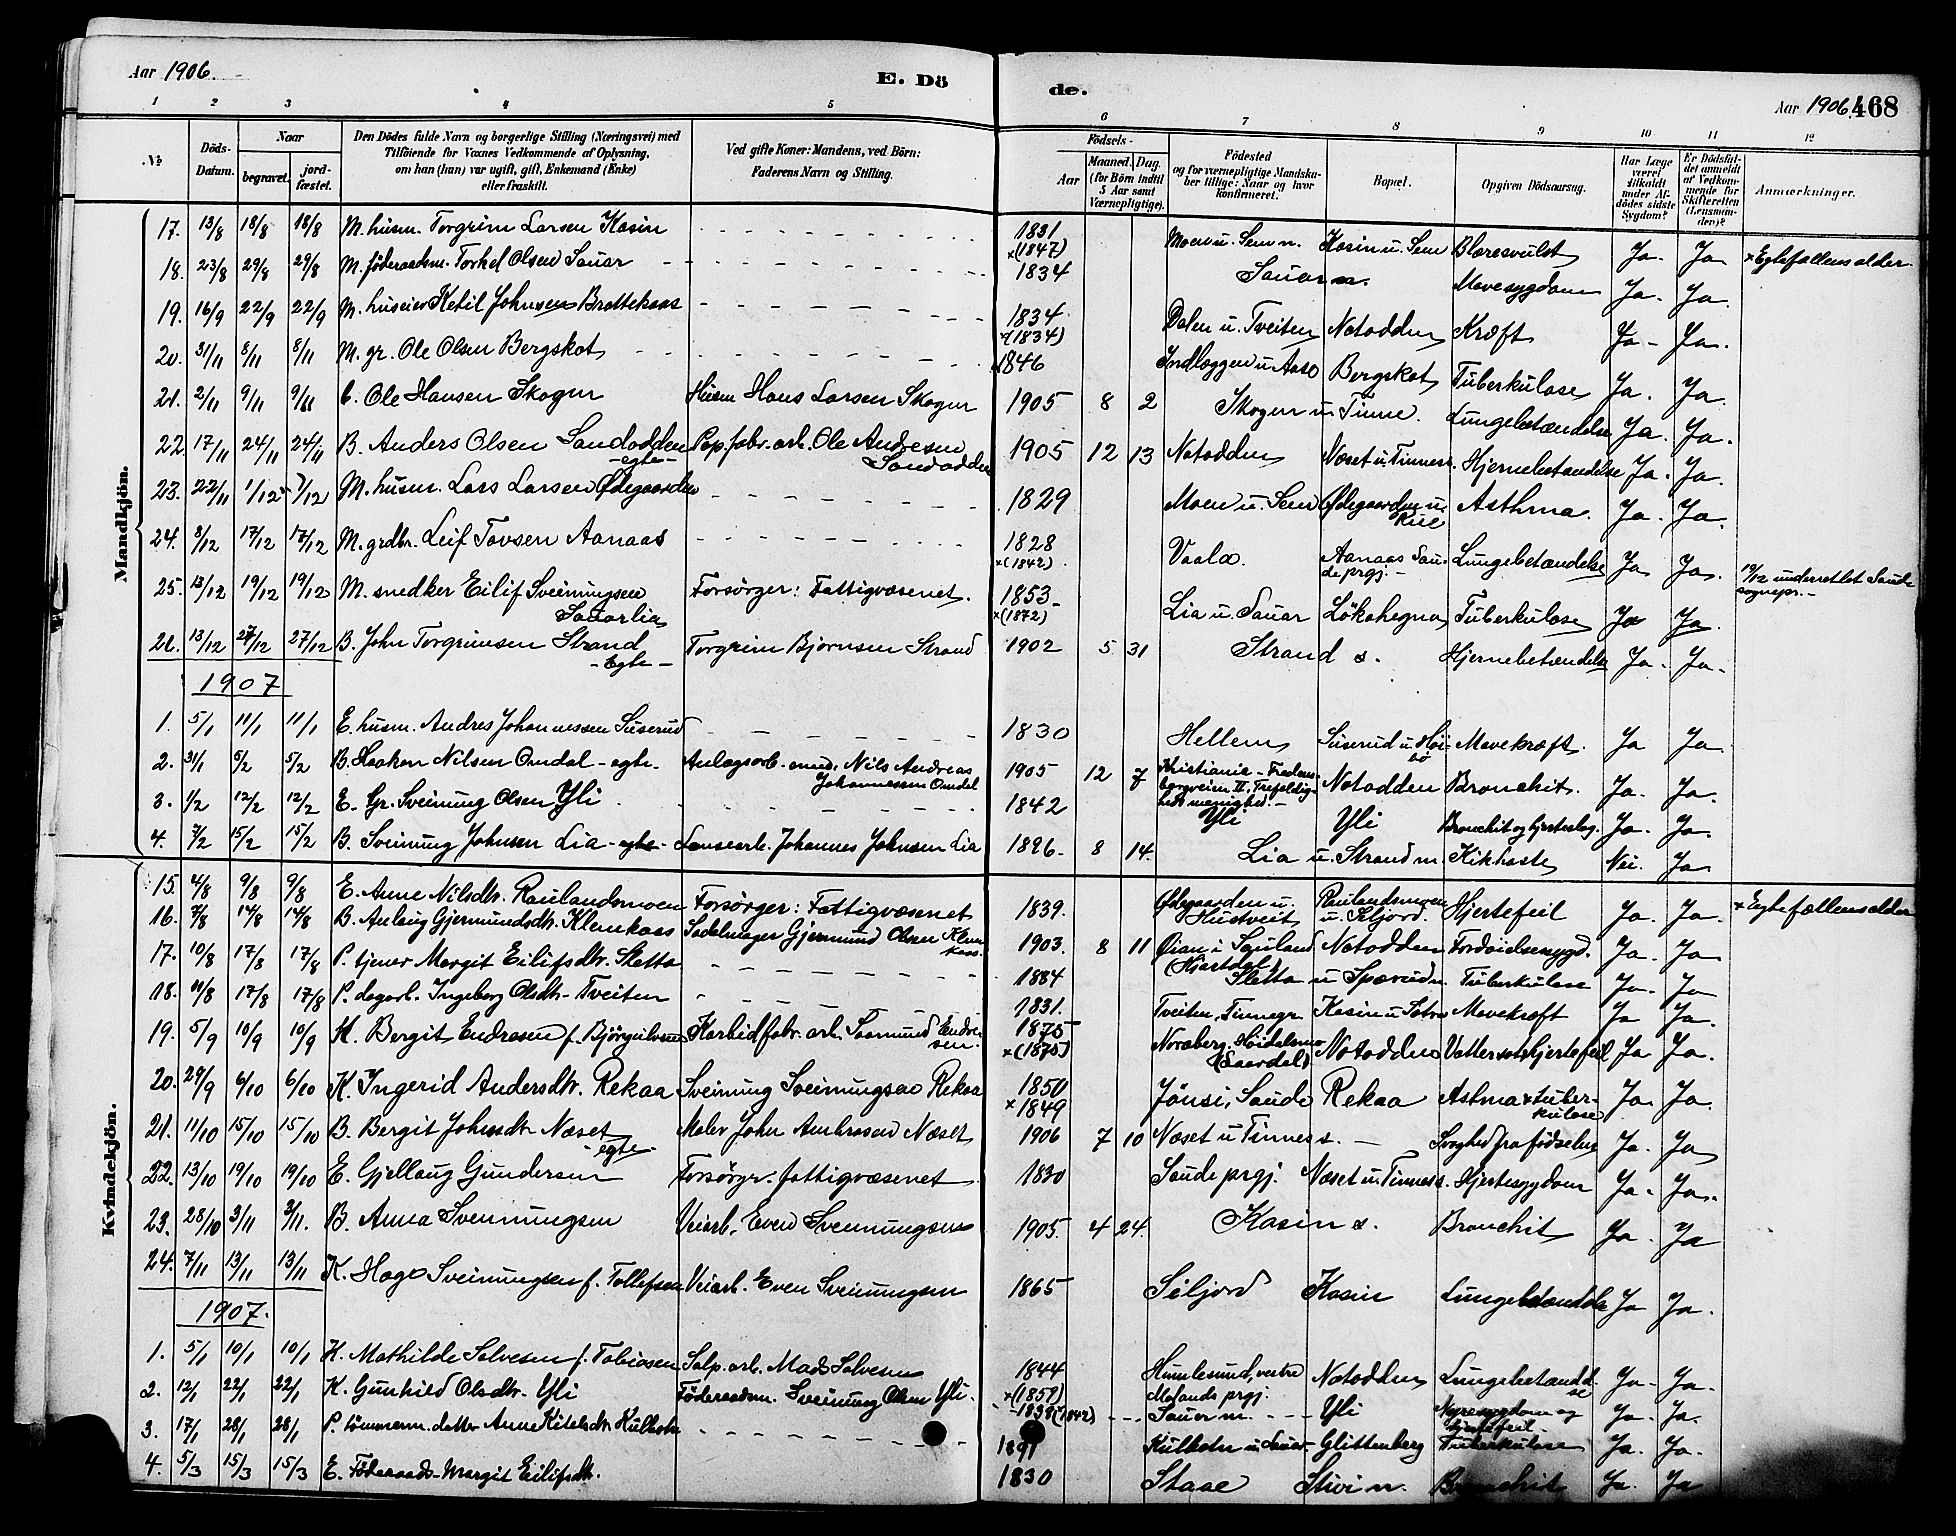 Aar 1906.
E. Dö
de.
Aar 1906. 468
1 2 3 4 5 6 7 8 9 10 11 12
№
Döds-Datum.
Naar
begravet.
jord-fæstet.
Den Dödes fulde Navn og borgerlige Stilling (Næringsvei) med
Tilföiende for Voxnes Vedkommende af Oplysning,
om han (hun) var ugift, gift, Enkemand (Enke)
eller fraskilt.
Ved gifte Koner: Mandens, ved Börn:
Faderens Navn og Stilling.
Födsels-
Aar
Maaned. Dag.
(for Börn indtil
5 Aar samt
Værnepligtige).
Födested
og for værnepligtige Mandska-
ber tillige: Naar og hvor
konfirmeret.
Bopæl.
Opgiven Dödsaarsag.
Har Læge
været
tilkaldt
under Af-
dödes sidste
Sygdom?
Er Dödsfal-
det anmeldt
af Vedkom-
mende for
Skifteretten
(Lensman-
den)?
Anmærkninger.
Mandkjön.
17. 13/8 18/8 18/8 M. husm. Torgrim Larsen Kasin 1831 ×(1847) Moen u. Sem n. Kasin u. Sem Blæresvulst Ja. Ja × Egtefællens alder.
18. 23/8 29/8 29/8 M. föderaadsm. Torkel Olsen Sauar 1834 Sauar n. Mavesygdom Ja. Ja.
19. 16/9 22/9 22/9 M. huseier Ketil Johnsen Brattekaas 1834 (1834) Dalen u. Tveiten Notodden Kræft Ja - Ja.
20. 31/11 8/11 8/11 M. gr. Ole Olsen Bergskot 1846 Indlæggen u. Aase Bergskot Tuberkulose Ja. Ja.
21. 2/11 9/11 9/11 Ole Hansen Skogen Husm Hans Larsen Skogen 1905 8 2 Skogen u Tinne. Lungebetændelse Ja. Ja.
22. 17/11 24/11 24/11 B. Anders Olsen Sandodden -egte- Pap. fabr. arb. Ole Andresen Sandodden 1905 12 13 Notodden Næset u Tinnes. Hjernebetændelse Ja. Ja.
23. 22/11 1/12 1/12 M. husm. Lars Larsen Ødegaarden 1829 Moen u. Sem Ødegaarden u. Rue Asthma. Ja. Ja.
24. 8/12 17/12 17/12 M. grdbr. Leif Tovsen Aanaas 1828 ×(1842) Vaala. Aanaas Sau-de prgj. - Lungebetændelse Ja Ja. 19/12 underrettet Saude sognepr. -
25. 13/12 19/12 19/12 M. snedker Eilif Sveinungsen Sauarlia Forsörger: Fattigvæsenet. 1853 ×(1872) Lia u. Sauar Lökahegna Tuberkulose Ja Ja.
26. 13/12 27/12 27/12 B. John Torgrimsen Strand -egte- Torgrim Bjornsen Strand 1902 5 31 Strand s. Hjernebetændelse Ja. Ja.
1907
1. 5/1 11/1 11/1 E. husm. Andres Johannessen Suserud 1830 Hellem Suserud u Höi-bö Mavekræft. Ja Ja.
2. 31/1 5/2 5/2 B. Haakon Nilsen Omdal - egte. Anlægsarb. Nils Andreas Johannessen Omdal 1905 12 7 Kristiania - Fredens-borgveien II, Trefoldig-heds menighed. - Notodden Bronchit. Ja. Ja.
3. 1/2 12/2 12/2 E. Gr. Sveinung Olsen Yli. 1842 Yli Yli Bronchit og hjerteslag. Ja. Ja.
4. 7/2 15/2 15/2 B. Sveinung Johnsen Lia - egte - Johannes Johnsen Lia 1896. 8 14. Lia u. Strand m. Kikhoste Nei. Ja
Kvindekjön.
15. 4/8 9/8 9/8 E. Anne Nilsdtr. Raulandsmoen Forsörger: Fattigvæsenet 1839. Ødegaarden u. Hustveit Raulandsmoen u. Seljord. Hjertefeil Ja. Ja. × Egtefællens alder
16. 7/8 14/8 14/8 B. Anlaug Gjermundsdtr. Klemkaas Sadelmager Gjermund Olsen Klem-kaas. 1903. 8 11 Øian i Sauland (Hjartdal) Notodden Fordöielsessygd. Ja. Ja
17. 10/8 17/8 17/8 P. tjener Margit Eilifsdtr. Sletta 1884 Sletta u Sperudn Tuberkulose Ja. Ja
18. 11/8 17/8 17/8 P. dagarb. Ingeborg Olsdtr. Tveiten 1831. Tveiten, Tinnegr. Kasin u. Mavekræft Ja Ja.
19. 5/9 10/9 10/9 K. Bergit Endresen f. Karbidfabr. arb. Endre-sen. 1875 ×(1875) Notodden Vattersot Hjertefeil Ja Ja.
20. 29/9 6/10 6/10 K. Ingerid Andersdtr. Rekaa Sveinung Sveinungsen Rekaa 1850 ×1849 Jönsi, Saude Rekaa Astma × tuber-kulose Ja. Ja.
21. 11/10 15/10 15/10 B. Bergit Johnsdtr Næset -egte- Maler John Ambrosen Næset 1906 7 10 Næset u Tinnes s. - Svaghed fra födselen Ja. Ja
22. 13/10 19/10 19/10 E. Gjellaug Gundersen Forsörgr. fattigvæsenet 1830 Saude prgj. Næset u. Tinnes s. Hjertesygdom Ja. Ja.
23. 28/10 3/11 3/11. B. Anna Sveinungsen Veiarb. Even Sveinungsen 1905. 4 24. Kasin s. Bronchit Ja. Ja
24. 7/11 13/11 13/11 K. Hage Sveinungsen f. Tollefsen Veiarb. Even Sveinungsen 1865 Siljord Kasin Lungebetændelse Ja Ja.
1907.
1. 5/1 10/1 10/1 K. Mathilde Salvesen f. Tobiasen Salp. arb. Mads Salvesen 1844 ×(1857) vestre Molands prgj. Notodden Lungebetændel-se Ja. Ja.
2. 12/1 22/1 22/1 K. Gunhild Olsdtr. Yli Föderaadsm. Sveinung Olsen Yli. 1838 (1842) Sauar m. Yli Nyresygdom og hjertefeil. Ja. Ja.
3. 17/1 28/1 28/1 P. tömmerm. datter Anne Kitelsdtr. 1891 Glittenberg Tuberkulose Ja. Ja.
4. 5/3 15/3 15/3 E. Föderaads- Margit Eilifsdtr. 1830 Staae Stivi n. Bronchit Ja. Ja